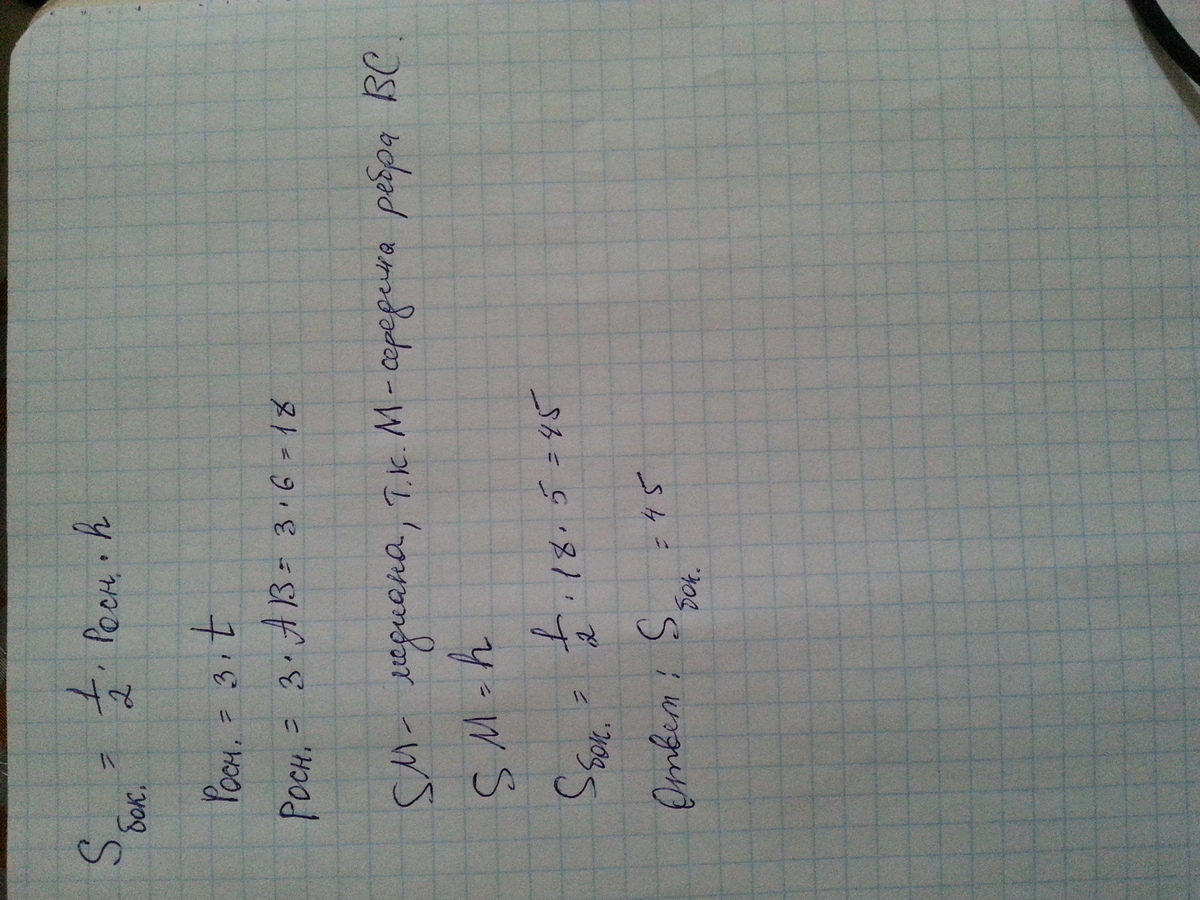 Sбок. = 1/2 · Pосн. · h
Pосн. = 3 · t
Pосн. = 3 · AB = 3 · 6 = 18
SM – медиана, т.к. M – середина ребра BC.
SM = h
Sбок. = 1/2 · 18 · 5 = 45
Ответ: Sбок. = 45